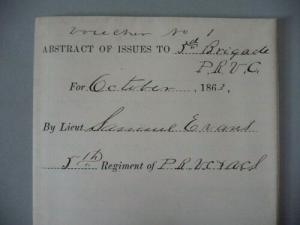 Voucher No 1
ABSTRACT OF ISSUES TO 5th Brigade
P.R.V.C.
For October, 1863,
By Lieut Samuel Evans
5th Regiment of P.R.V.C.